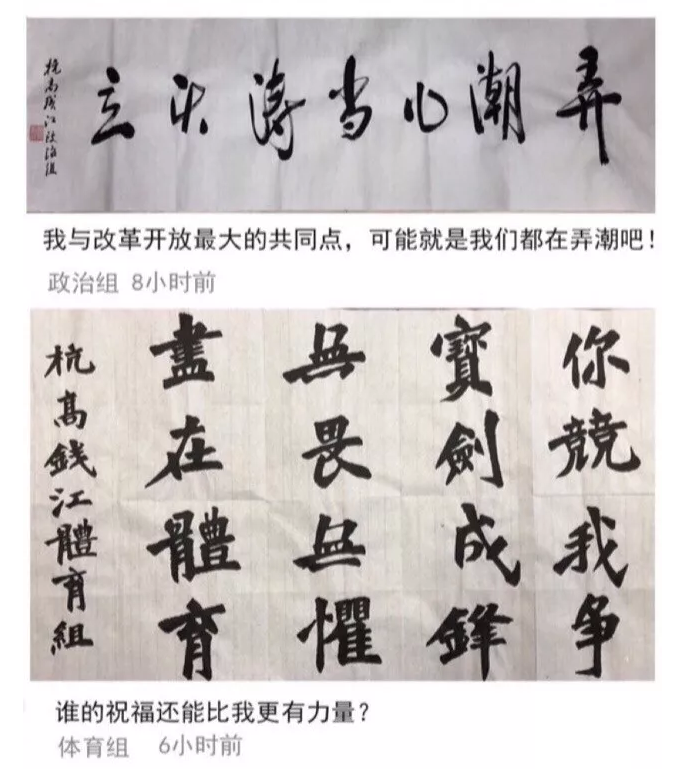 弄潮儿当涛头立
杭高钱江政治组
我与改革开放最大的共同点，可能就是我们都在弄潮吧！
政治组 8小时前
你競我争
寶劍成鋒
無畏無懼
盡在體育
杭高錢江體育組
谁的祝福还能比我更有力量？
体育组 6小时前